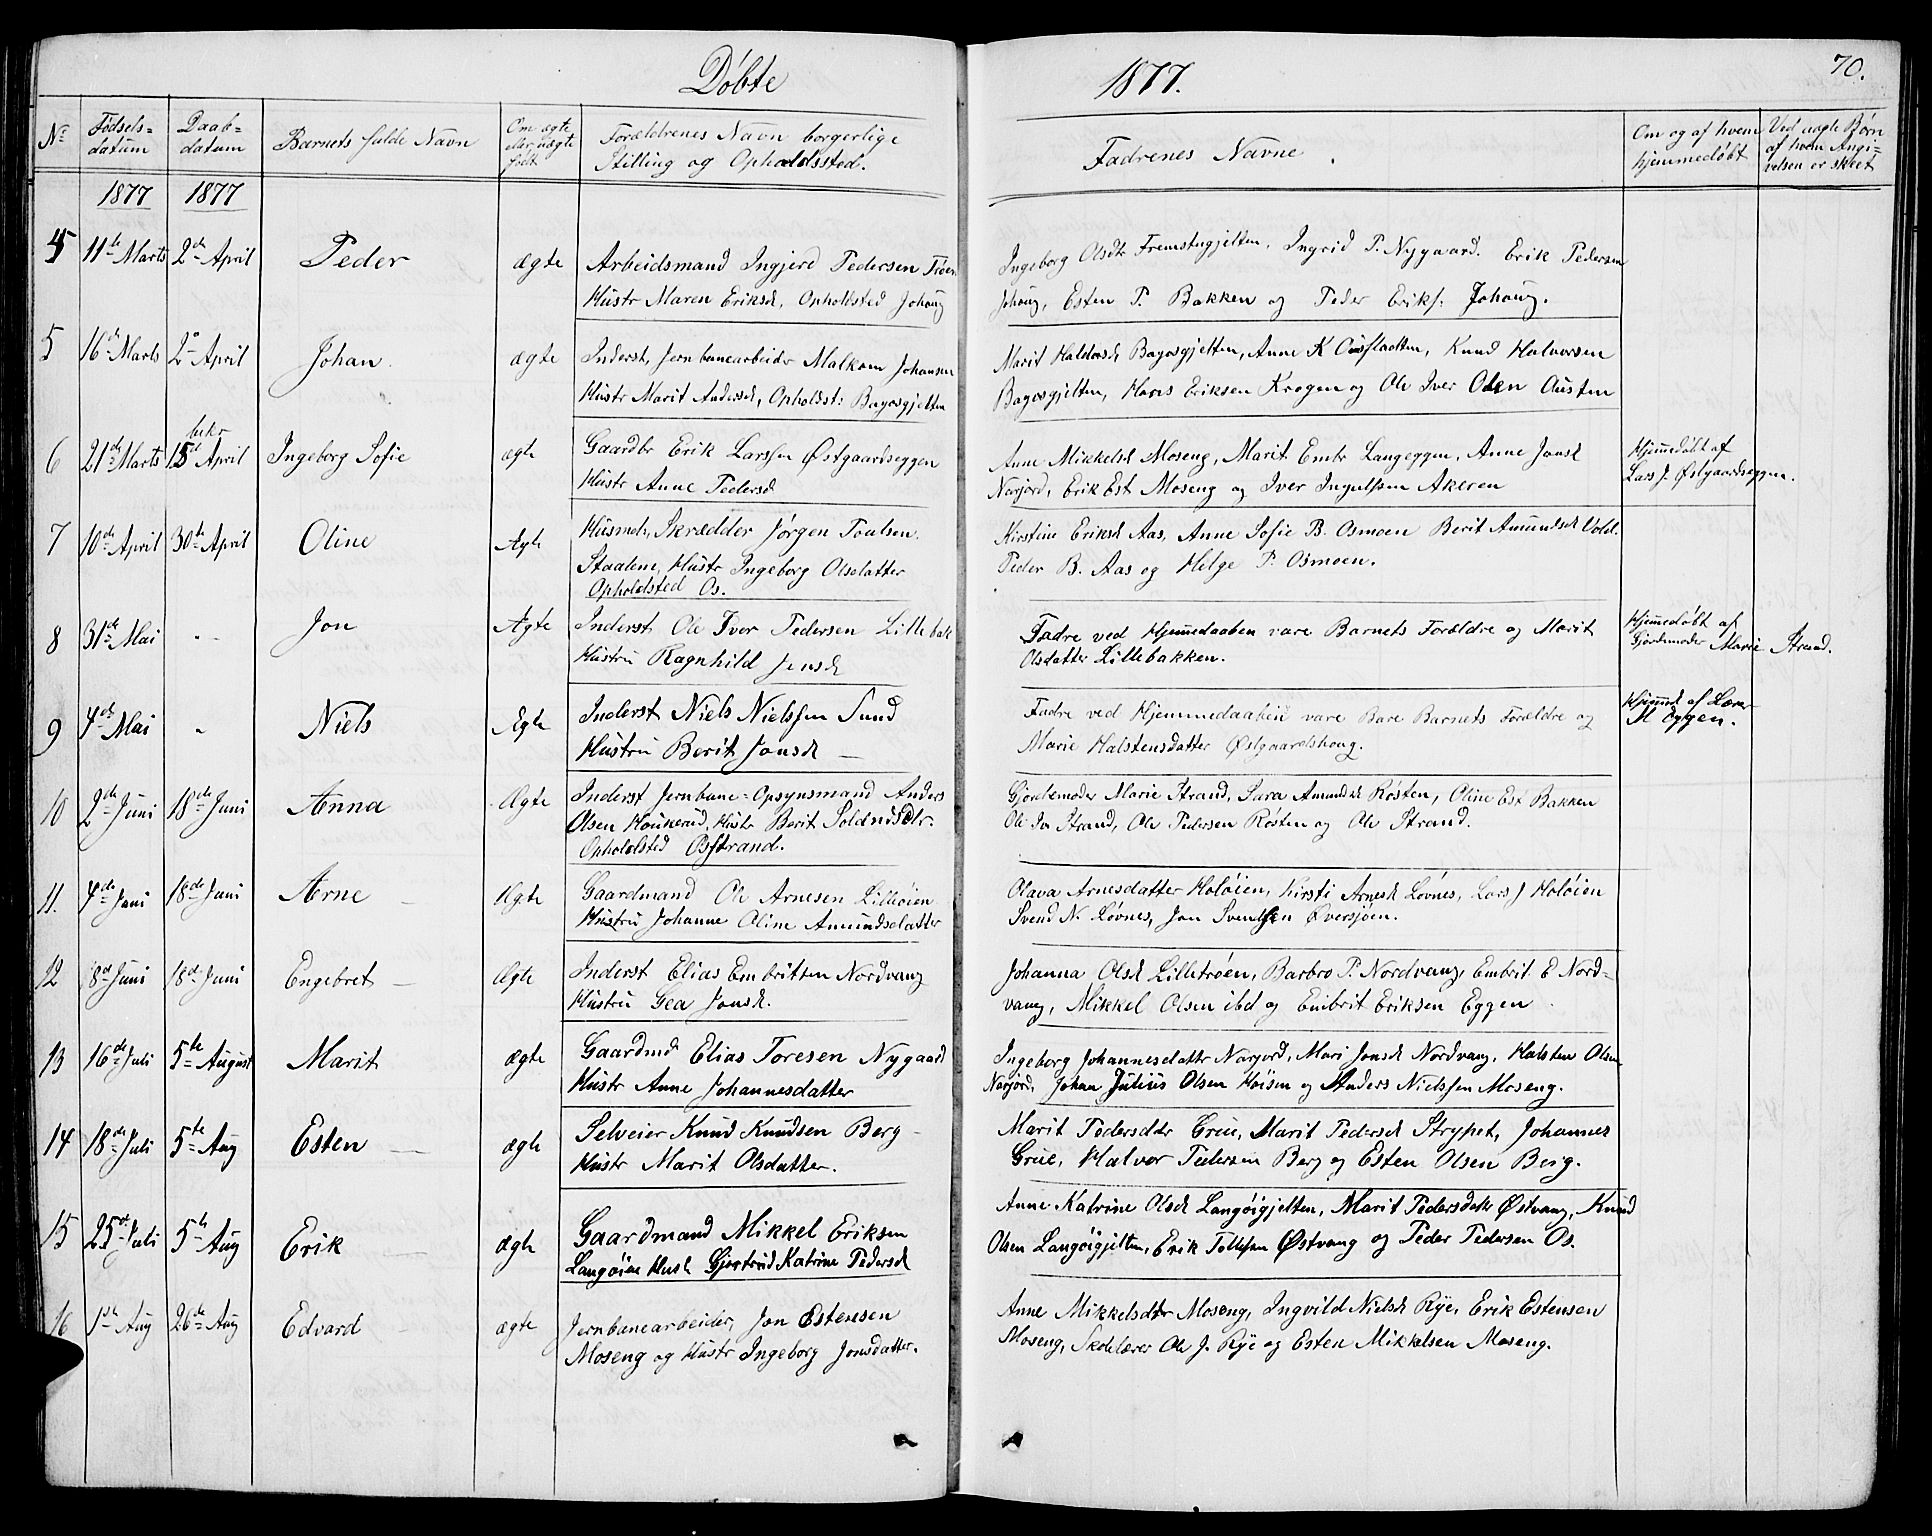 Døbte
1877.
70.
Nr
Fødsels-
datum
Daab-
datum
Barnets fulde Navn
Om ægte
eller uægte
født
Forældrenes Navn borgerlige
Stilling og Opholdssted.
Fadrenes Navne
Om og af hvem
hjemmedøbt
Ved uægte Børn
af hvem Angi-
velsen er skeet
1877 1877
11te Marts 2den April Peder ægte Arbeidsmand Ingjerd Pedersen
Hustr Maren Eriksd, Opholdsted Johaug
Ingeborg Olsdtr Fremstugjelten, Ingrid P. Nygaard. Erik Pedersen
Johaug, Esten P. Bakken og Peder Eriks. Johaug.
5 16de Marts 2den April Johan ægte Inderst, Jernbanearbeidr Malkom Johansen
Hustr Marit Andersd, Opholdst: Bagosgjelten
Marit Haldosd Bagosgjelten, Anne K, Knud Halvorsen
Bagosgjelten, Hans Eriksen Krogen og Ole Iver Olsen Austen
6 21de Marts bekr 15de April Ingeborg Sofie ægte Gaardbr Erik Larssen Østgaardseggen
Hustr Anne Pedersd
Anne Mikkelsd Moseng, Marit Embr Langeggen, Anne Jonsd
Narjord, Erik Est Moseng og Iver Ingulfsen Akeren
Hjemmedøbt af
Lars J. Østgaardseggen.
7 10de April 30te April Oline Ægte Husmd, Skrædder Jørgen Poulsen.
Staalene, Hustr Ingeborg Olsdatter
Opholdsted Os.
Kirstine Eriksd Aas, Anne Sofie B. Osmoen Berit Amundsd Vold.
Peder B. Aas og Helge P. Osmoen.
8 31de Mai - Jon Ægte Inderst Ole Iver Pedersen Lillebak
Hustru Ragnhild Jensd
Fadre ved Hjemmedaaben vare Barnets Forældre og Marit
Olsdatter Lillebakken.
Hjemmedøbt af
Gjordemoder Marie Strand.
9 4de Mai - Niels Ægte Inderst Niels Nielssen Sund
Hustru Berit Jonsd
Fadre ved Hjemmedaaben vare Bare Barnets Forældre og
Marie Halstensdatter Østgaardshaug.
Hjemmd af Lærer
H Eggen.
10 2de Juni 18de Juni Anna Ægte Inderst Jernbane-Opsynsmand Anders
Olsen Houkerud, Hustr Berit
Opholdsted Osstrand.
Gjordemoder Marie Strand, Sara Amundsd Røsten, Oline Est Bakken
Ole Strand, Ole Pedersen Røsten og Ole Strand.
11. 4de Juni 18de Juni Arne Ægte Gaardmand Ole Arnesen Lilleøien
Hustru Johanne Oline Amundsdatter
Olava Arnesdatter Holøien, Kirsti Arnesd Løvnes, Lars J Holøien
Svend N. Løvnes, Jon Svendsen Øversjøen.
12 8de Juni 18de Juni Engebret Ægte Inderst Elias Embritsen Nordvang
Hustru Gea Jonsd.
Johanna Olsd Lilletrøen, Barbro P. Nordvang, Embrit E Nord-
vang, Mikkel Olsen ibd og Embrit Eriksen Eggen
13 16de Juli 5te August Marit ægte Gaardmd Elias Toresen Nygaard
Hustr Anne Johannesdatter
Ingeborg Johannesdattr Narjord, Mari Jonsd Nordvang, Halsten Olsen
Narjord, Johan Julius Olsen Høisen og Anders Nielssen Moseng.
14 18de Juli 5te Aug Esten ægte Selveier Knud Knudsen Berg
Hustr Marit Olsdatter.
Marit Pedersdtr Grue, Marit Pedersd Strypet, Johannes
Grue, Halvor Pedersen Berg og Esten Olsen Berg.
15 25de Juli 5te Aug Erik ægte Gaardmand Mikkel Eriksen
Langøien Hust Gjertrud Katrine Pedersd
Anne Katrine Olsd Langøigjelten, Marit Pedersdatr Østvang, Knud
Olsen Langøigjelten, Erik Tollefsen Østvang og Peder Pedersen Os.
16 1ste Aug 26de Aug Edvard ægte Jernbanearbeider, Jon Estensen
Moseng og Hustr Ingeborg Jonsdatter.
Anne Mikkelsdtr Moseng, Ingvild Nielsd Rye, Erik Estensen
Moseng, Skolelærer Ole J. Rye og Esten Mikkelsen Moseng.